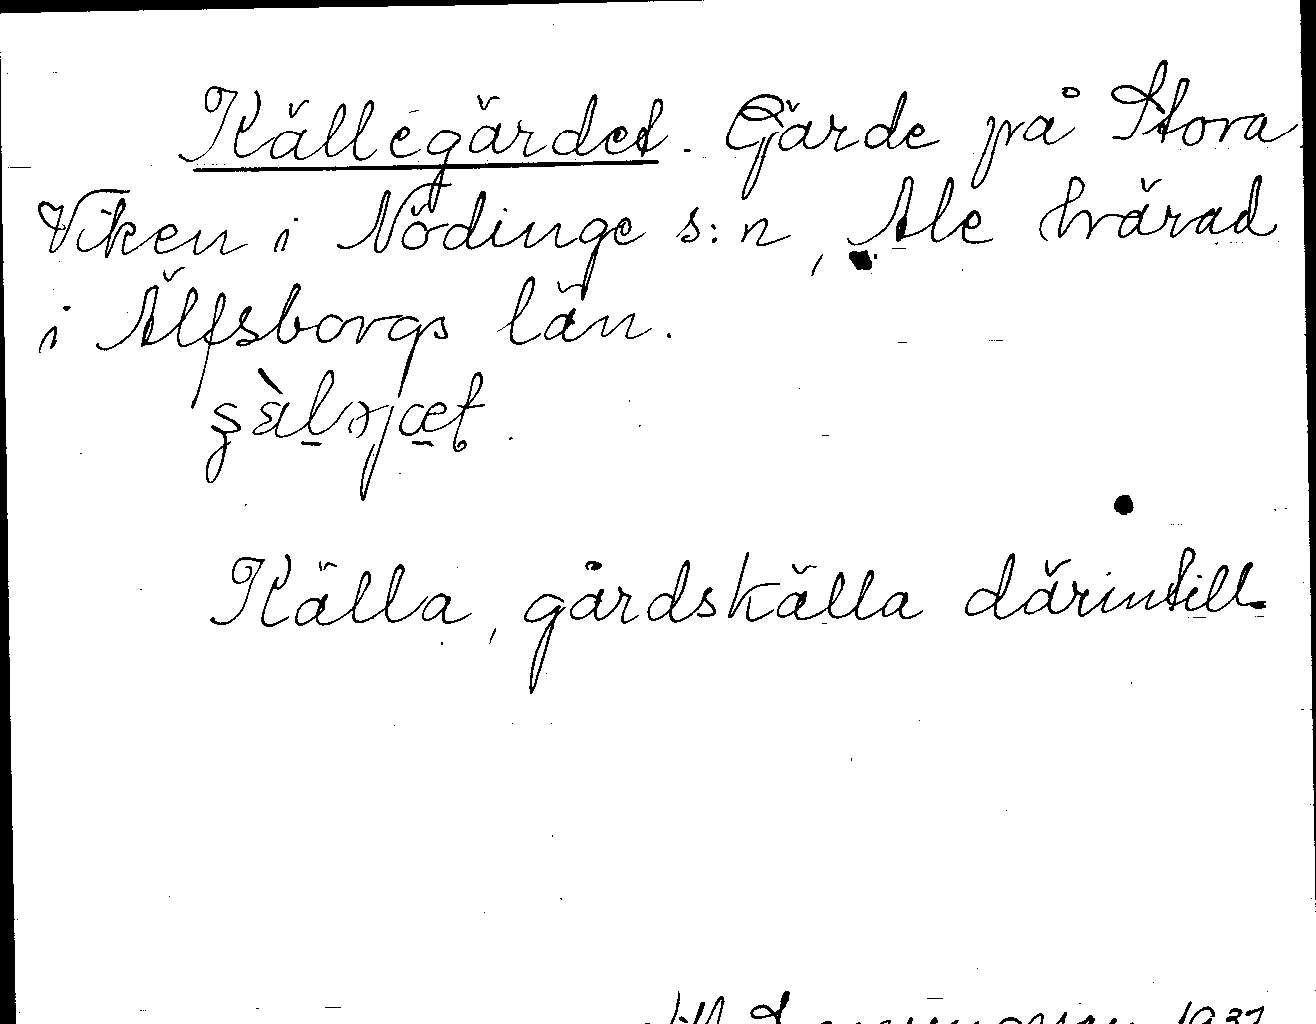 Källegärdet. Gärde på Stora
Viken i Nödinge s:n, Ale härad
i Älfsborgs län.
Källa, gårdskälla därintill.
1937